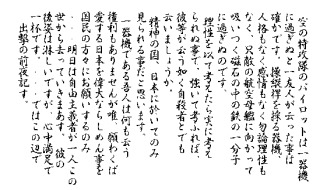 空の特攻隊のパイロットは一器械
に過ぎぬと一友人が云った事は
確かです。操縦桿を採る器械、
人格もなく感情もなく勿論理性も
なく、只敵の航空母艦に向かって
吸いつく磁石の中の鉄の一分子
に過ぎぬのです。
理性を以て考えたら実に考え
られぬ事で、強いて考ふれば、
彼等が云ふ如く自殺者とでも
云いましょうか。
精神の国、日本に於いてのみ
見られる事だと思います。
一器械である吾人は何も云う
権利もありませんが唯、願わくば
愛する日本を偉大ならしめん事を
国民の方々にお願いするのみ
明日は自由主義者が一人この
世から去っていきます。彼の
後姿は淋しいですが、心中満足で
一杯です。ではこの辺で
出撃の前夜記す。